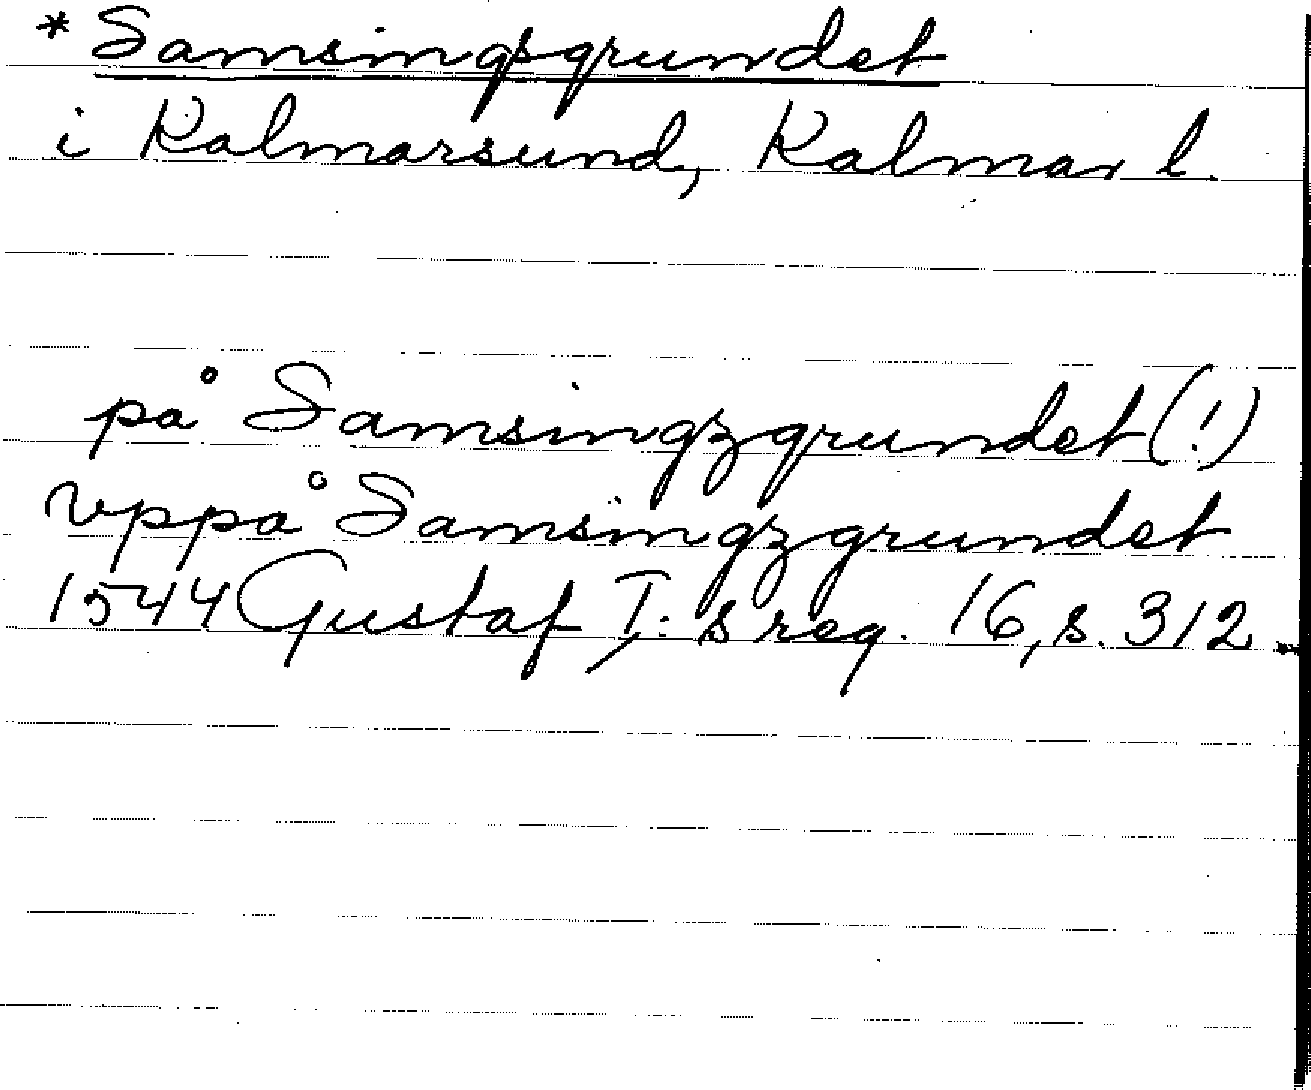 *Samsingsgrundet
i Kalmarsund, Kalmar l.
på Samsingzgrundet (!)
vppå Samsingzgrundet
1544 Gustaf I:s reg. 16, s. 312.